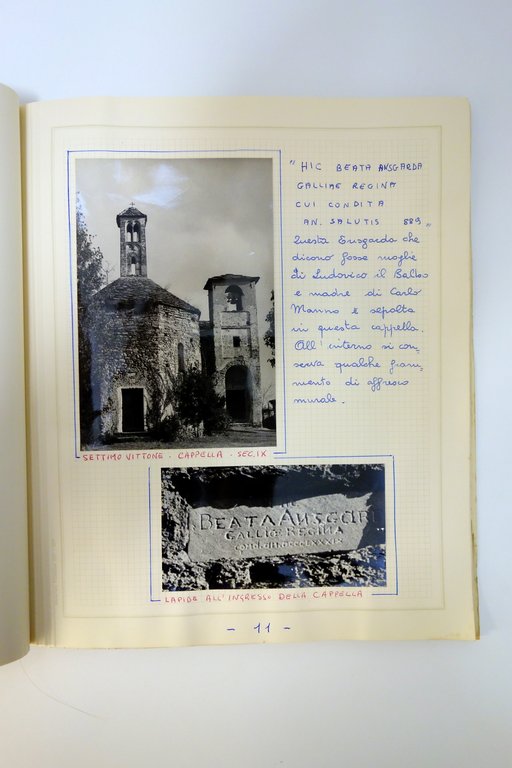 "HIC BEATA ANSGARDA
GALLIAE REGINA
CUI CONDITA
AN. SALUTIS 889"
Questa Ansgarda che
dicono fosse moglie
di Ludovico il Balbo
e madre di Carlo
Manno è sepolta
in questa cappella.
All'interno si con=
serva qualche fram=
mento di affresco
murale.
SETTIMO VITTONE - CAPPELLA - SEC. IX
BEATA ANSGAR
GALLIÆ REGINA
LAPIDE ALL'INGRESSO DELLA CAPPELLA
- 11 -